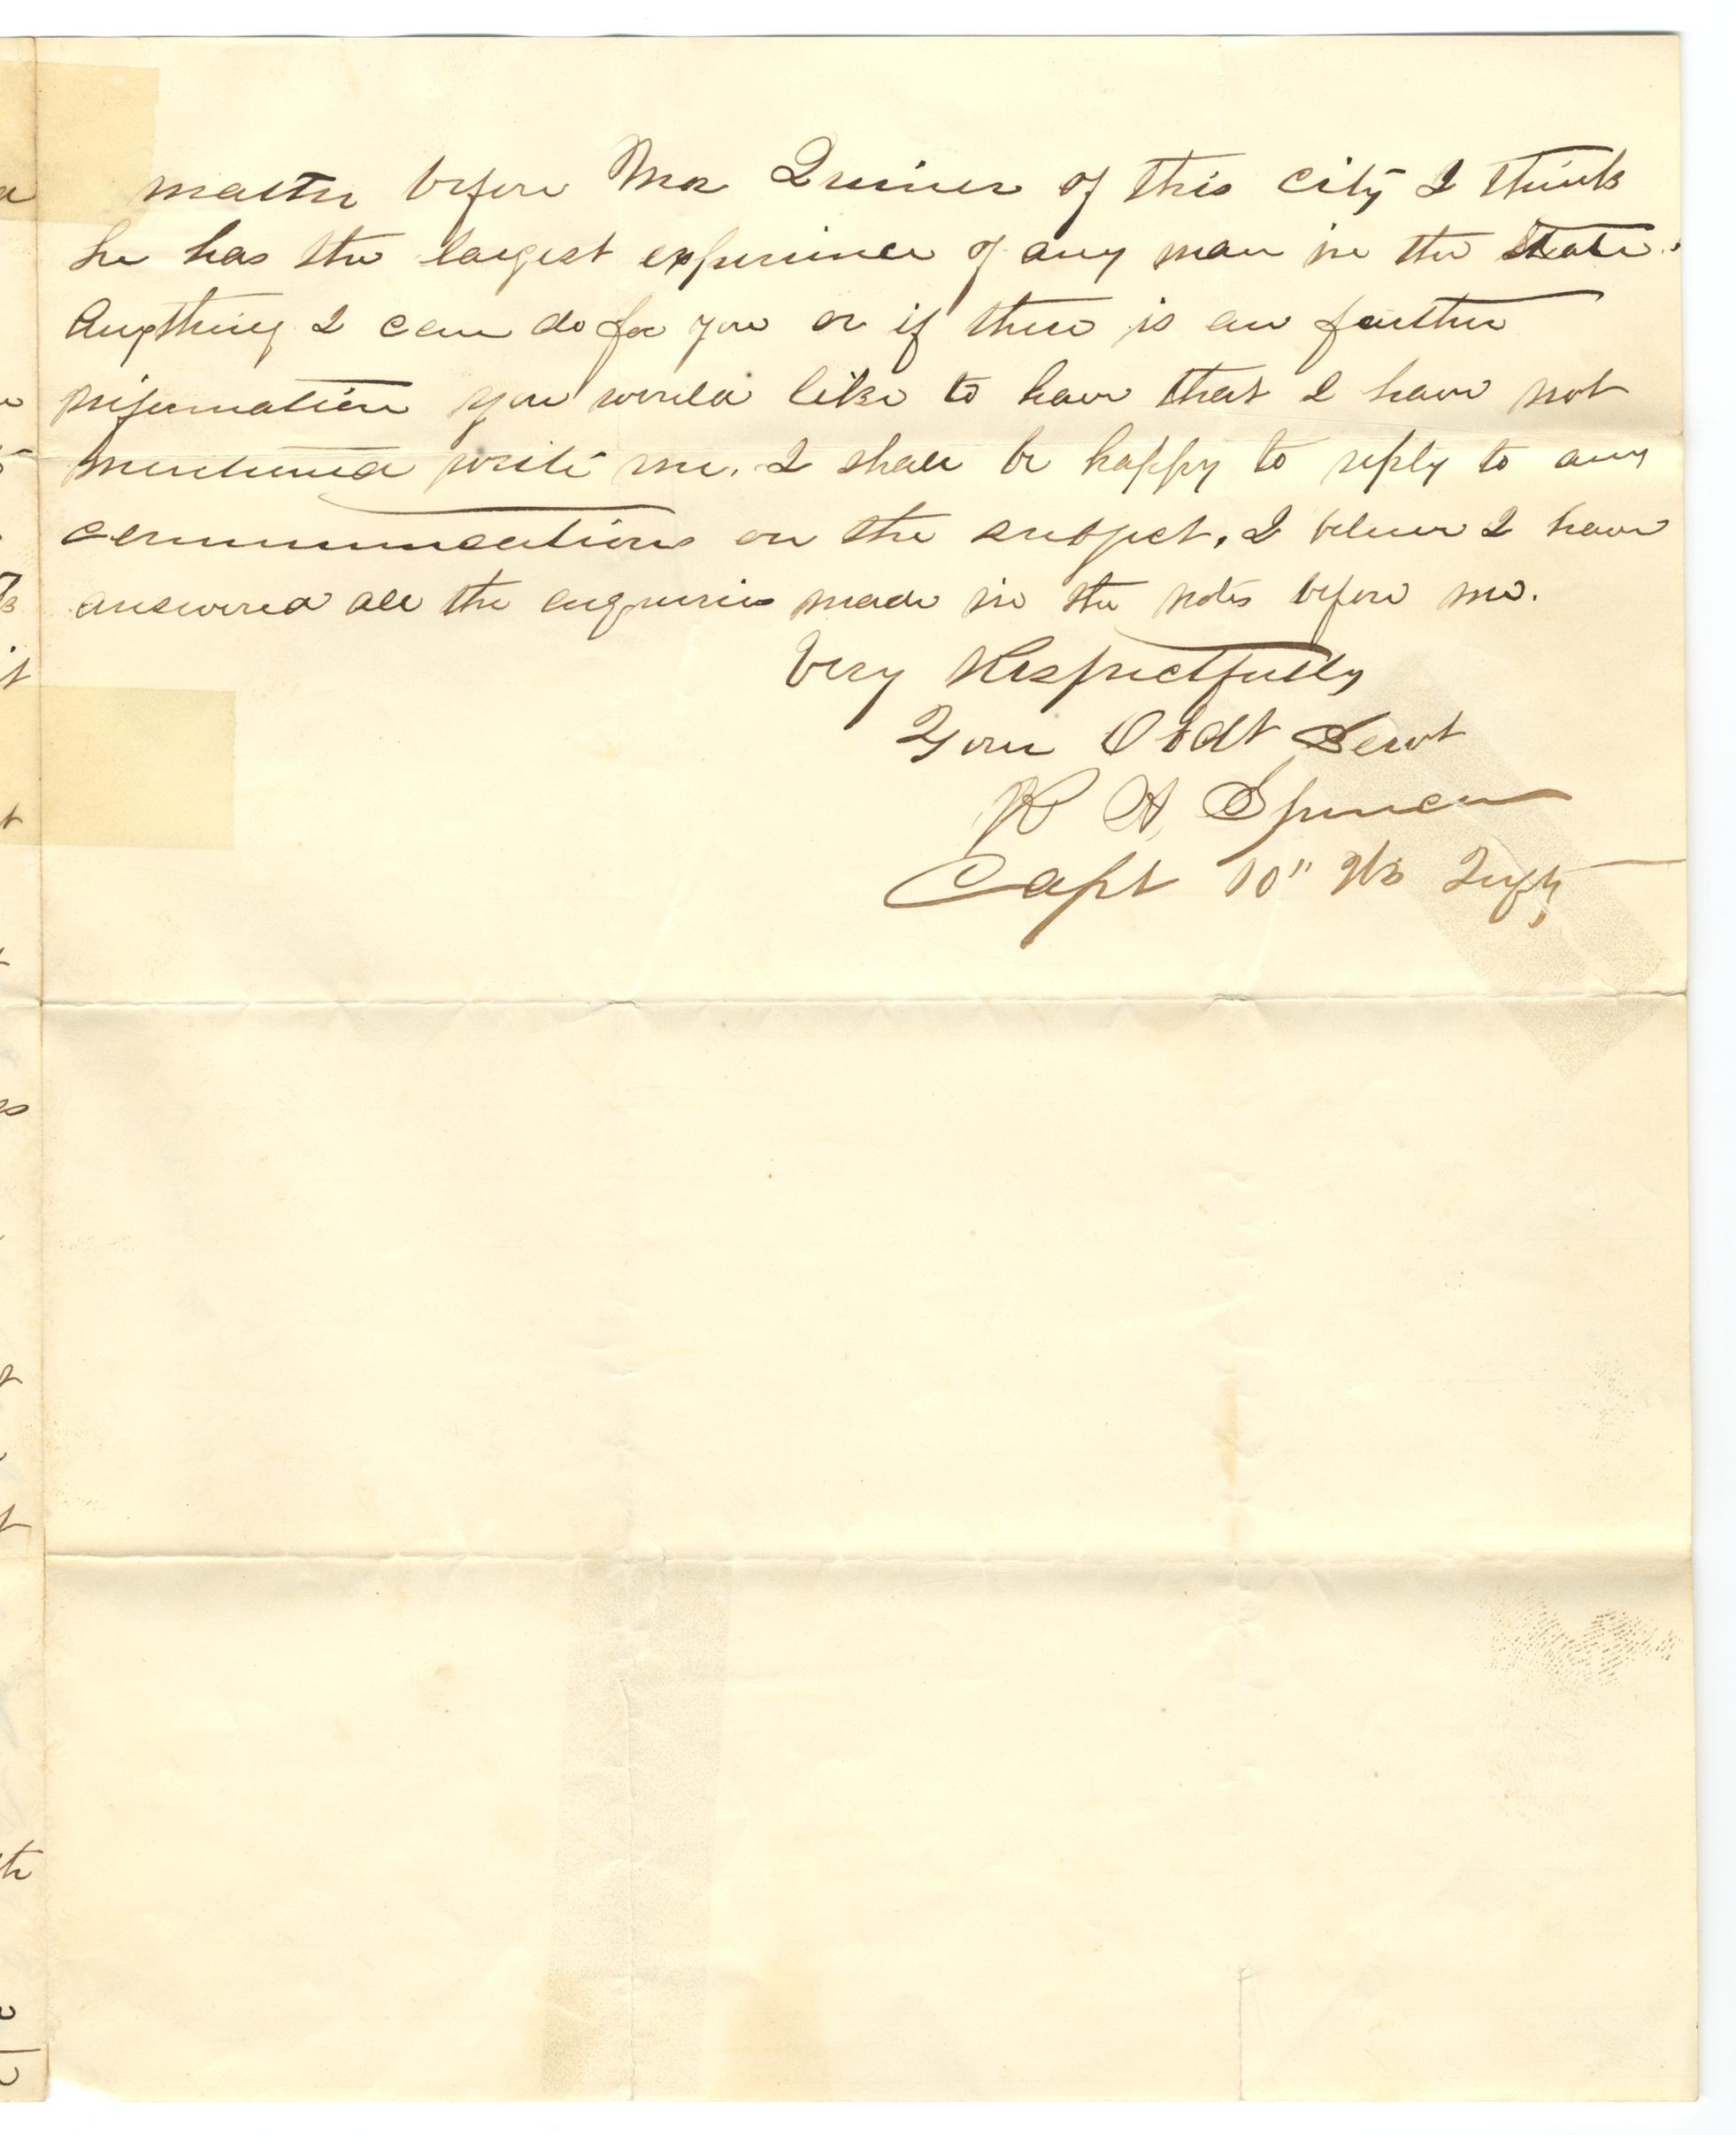 matter before Mr Quiner of this city I think
he has the largest experience of any man in the State.
Anything I can do for you or if there is an further
information you would like to have that I have not
mentioned write me. I shall be happy to reply to any
communications on the subject. I believe I have
answered all the enquiries made in the notes before me.
Very Respectfully
Your Obdt Servt
R H Spencer
Capt 10" Wis Infty